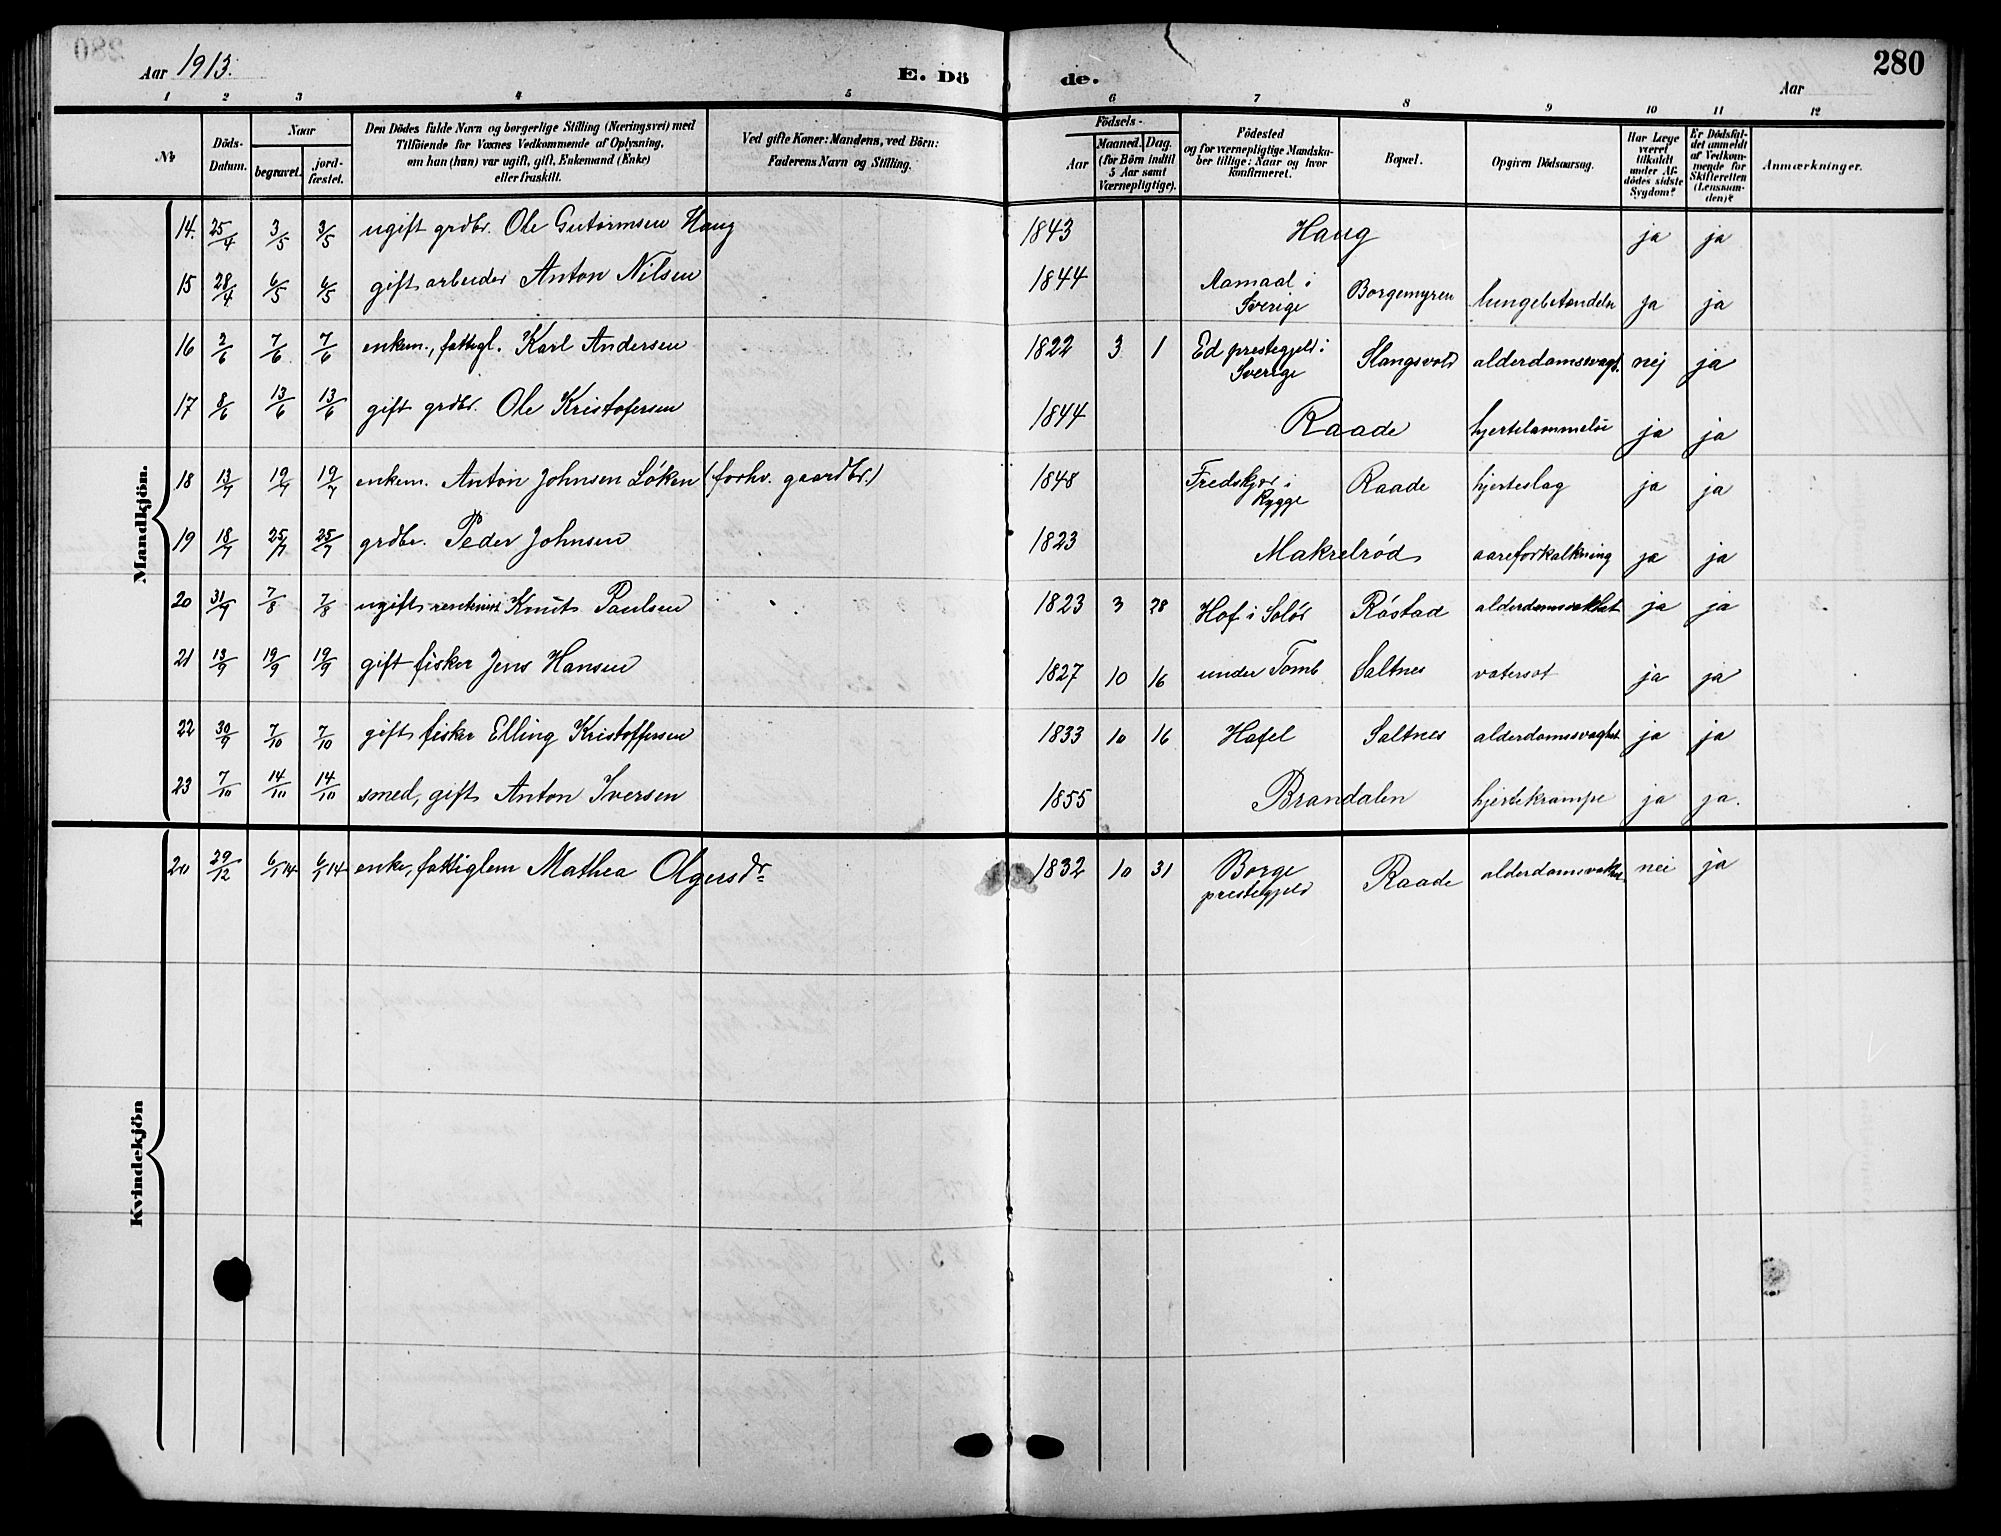 280
Aar 1913.
E. Dö de.
Aar
1 2 3 4 5 6 7 8 9 10 11 12
Nr
Döds-Datum.
Naar
begravet.
jord-fæstet.
Den Dödes fulde Navn og borgerlige Stilling (Næringsvei) med
Tilföiende for Voxnes Vedkommende af Oplysning,
om han (hun) var ugift, gift, Enkemand (Enke)
eller fraskilt.
Ved gifte Koner: Mandens, ved Börn:
Faderens Navn og Stilling.
Födsels-
Aar
Maaned. Dag.
(for Börn indtil
5 Aar samt
Værnepligtige).
Födested
og for værnepligtige Mandska-
ber tillige: Naar og hvor
konfirmeret.
Bopæl.
Opgiven Dödsaarsag.
Har Læge
været
tilkaldt
under Af-
dödes sidste
Sygdom?
Er Dödsfal-
det anmeldt
af Vedkom-
mende for
Skifteretten
(Lensman-
den)?
Anmærkninger.
Mandkjön.
14. 25/4 3/5 3/5 ugift grdbr. Ole Gutormsen Haug 1843 Haug ja ja
15 28/4 6/5 6/5 gift arbeider Anton Nilsen 1844 Aamaal i Sverige Borgemyren lungebetændelse ja ja
16 2/6 7/6 7/6 enkem., fattigl. Karl Andersen 1822 3 1 Ed prestegjeld i Sverige Slangsvold alderdomssvagh. nej ja
17 8/6 13/6 13/6 gift grdbr. Ole Kristofersen 1844 Raade hjertelammelse ja ja
18 13/7 19/7 19/7 enkem. Anton Johnsen Løken (forhv. gaardbr.) 1848 Fredskjør i Rygge Raade hjerteslag ja ja
19 18/7 25/7 25/7 grdbr. Peder Johnsen 1823 Makrelrød aareforkalkning ja ja
20 31/7 7/8 7/8 ugift rentenist Knut Paulsen 1823 3 28 Hof i Solør Røstad alderdomssvakhet ja ja
21 13/9 19/9 19/9 gift fisker Jens Hansen 1827 10 16 under Tomb Saltnes vatersot ja ja
22 30/9 7/10 7/10 gift fisker Elling Kristoffersen 1833 10 16 Hafel Saltnes alderdomssvaghet ja ja
23 7/10 14/10 14/10 smed, gift Anton Iversen 1855 Brandalen hjertekrampe ja ja.
Kvindekjön
20 29/12 6/1 14 6/1 14 enke, fattiglem Mathea Olgersdr 1832 10 31 Borge prestegjeld Raade alderdomsvakhet nei ja